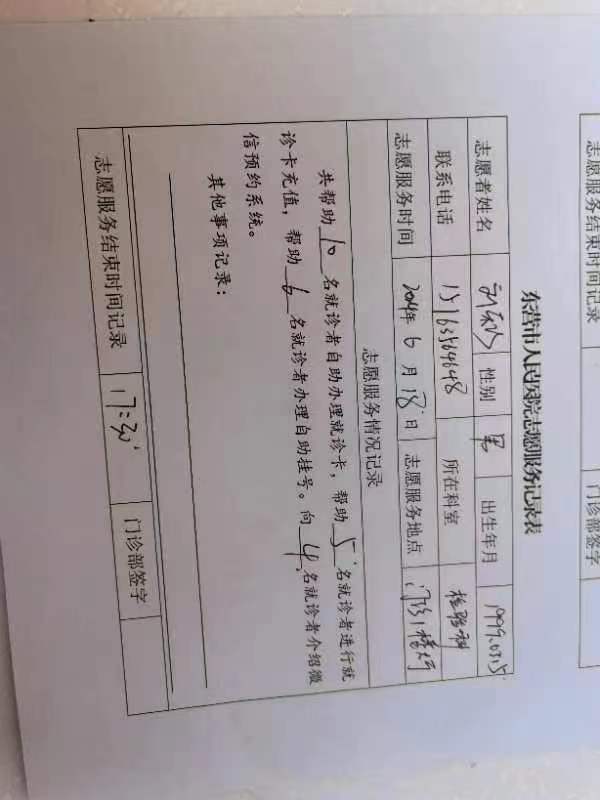 东营市人民医院志愿服务记录表
志愿者姓名 性别 男 出生年月 1999.03.15
联系电话 15763564648 所在科室 检验科
志愿服务时间 2019年 6 月 18 日 志愿服务地点 门诊1楼
志愿服务情况记录
共帮助 10 名就诊者自助办理就诊卡，帮助 5 名就诊者进行就
诊卡充值，帮助 6 名就诊者办理自助挂号。向 4 名就诊者介绍微
信预约系统。
其他事项记录：
志愿服务结束时间记录 17:30 门诊部签字
志愿服务结束时间记录
门诊部签字